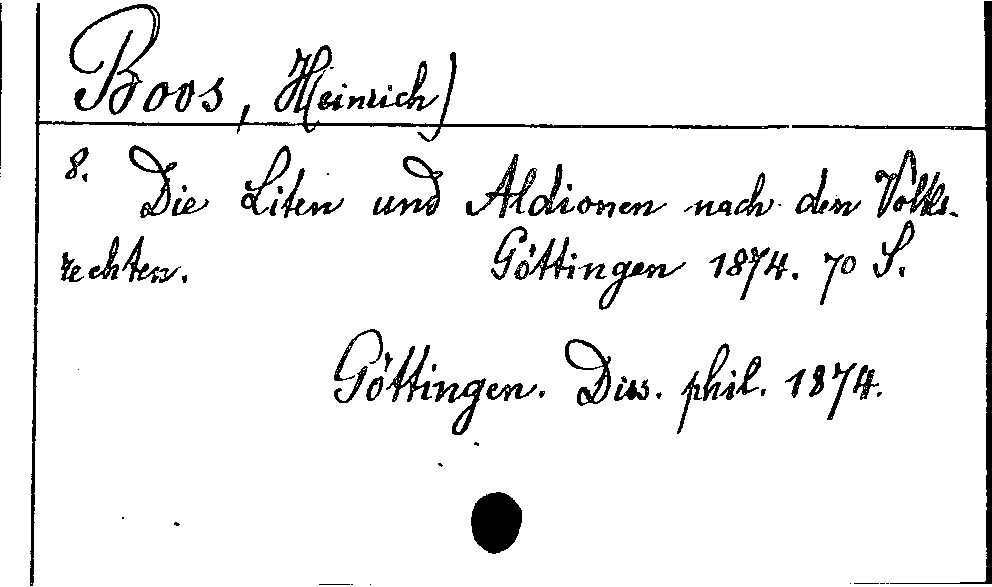 Boos, Heinrich)
8. Die Liten und Aldionen nach den Volks-
rechten. Göttingen 1874. 70 S.
Göttingen. Diss. phil. 1874.